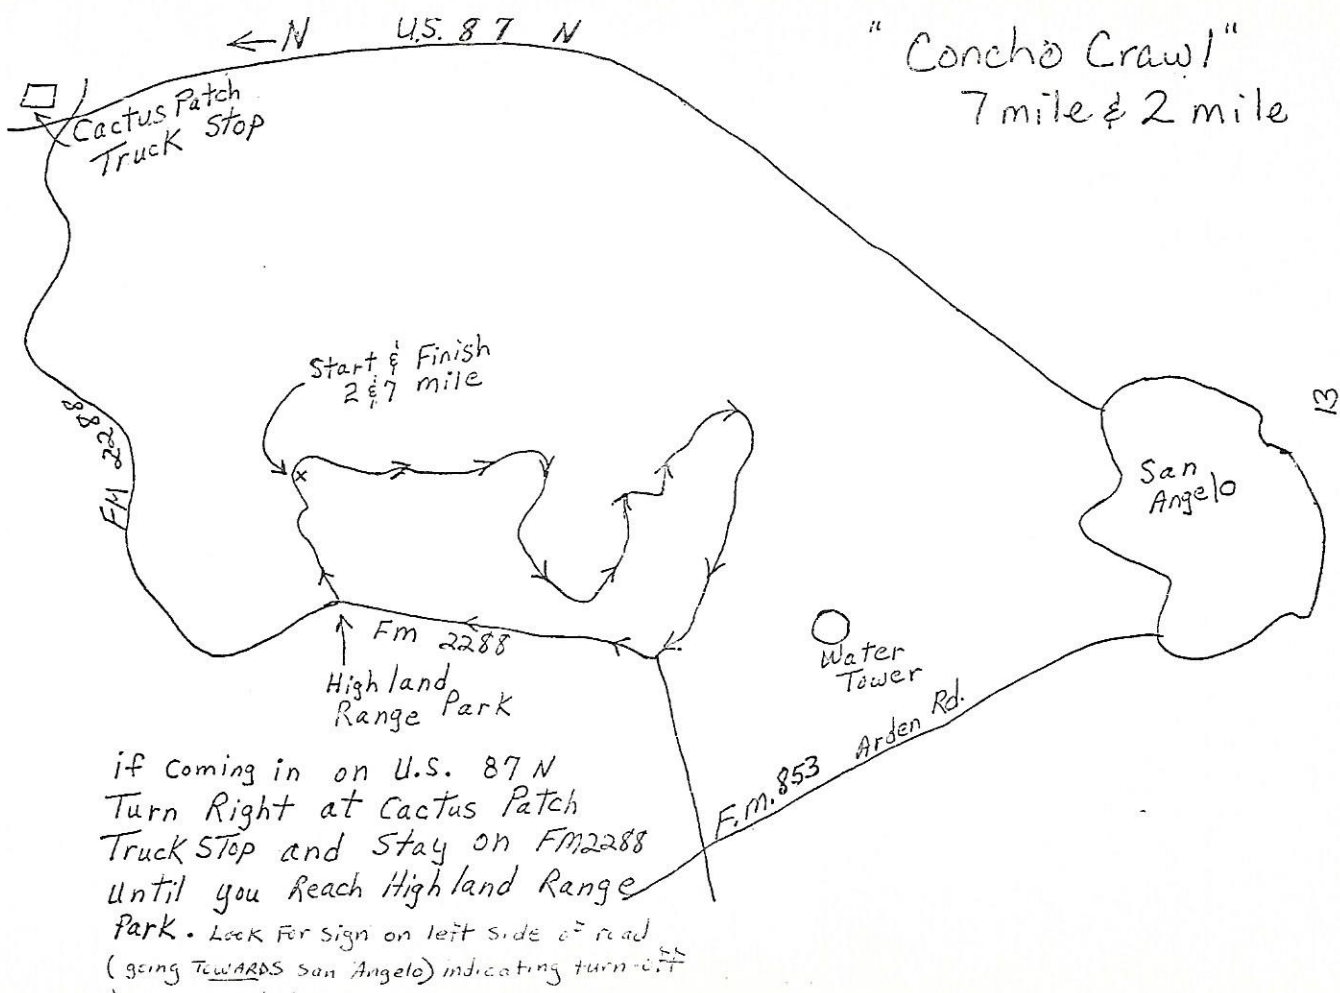 ← N U.S. 87 N
"Concho Crawl"
7 mile & 2 mile
Cactus Patch
Truck Stop
Start & Finish
2 & 7 mile
13
FM 2288
San
Angelo
x
Fm 2288
Water
Tower
Highland
Range Park
F.m. 853 Arden Rd.
if coming in on U.S. 87 N
Turn Right at Cactus Patch
Truck STop and Stay on FM2288
until you Reach Highland Range
Park. Look For sign on left side of road
(going TOWARDS San Angelo) indicating turn-off